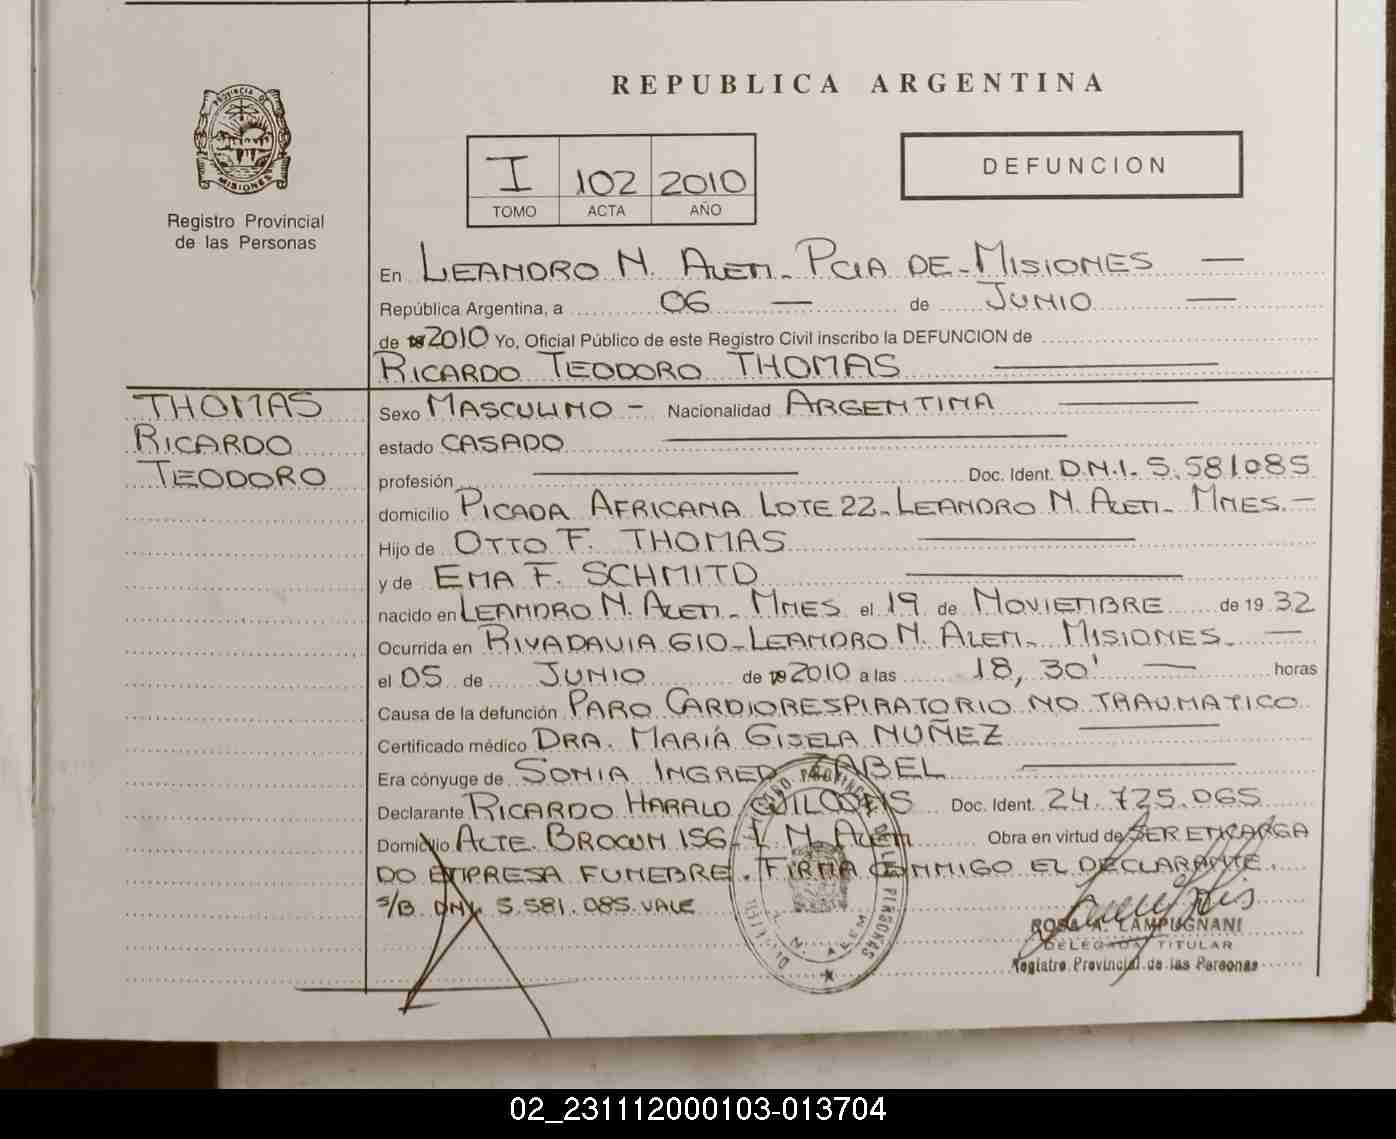 REPUBLICA ARGENTINA
PROVINCIA DE
MISIONES
Registro Provincial
de las Personas
I 102 2010
TOMO ACTA AÑO
DEFUNCION
En LEANDRO N. ALEM - PCIA DE - MISIONES —
República Argentina, a 06 — de JUNIO —
de 19 2010 Yo, Oficial Público de este Registro Civil inscribo la DEFUNCION de
RICARDO TEODORO THOMAS —
THOMAS
RICARDO
TEODORO
Sexo MASCULINO - Nacionalidad ARGENTINA —
estado CASADO —
profesión — Doc. Ident. D.N.I. 5.581085
domicilio PICADA AFRICANA LOTE 22 - LEANDRO N. ALEM - MNES. -
Hijo de OTTO F. THOMAS —
y de EMA F. SCHMITD —
nacido en LEANDRO N. ALEM - MNES el 19 de NOVIEMBRE de 19 32
Ocurrida en RIVADAVIA 610 - LEANDRO N. ALEM - MISIONES - —
el 05 de JUNIO de 19 2010 a las 18,30' — horas
Causa de la defunción PARO CARDIORESPIRATORIO NO TRAUMATICO
Certificado médico DRA. MARIÁ GISELA NUÑEZ —
Era cónyuge de SONIA INGRED ZABEL —
Declarante RICARDO HARALD Doc. Ident. 24.725.065
Domicilio ALTE. BROWN 156 - L. N. ALEM Obra en virtud de SER ENCARGA
DO EMPRESA FUNEBRE. FIRMA CONMIGO EL DECLARANTE.
S/B DNI. 5.581.085. VALE
PROVINCIAL DE LAS PERSONAS
L. N. ALEM
ROSA A. LAMPUGNANI
DELEGADA TITULAR
Registro Provincial de las Personas
02_231112000103-013704